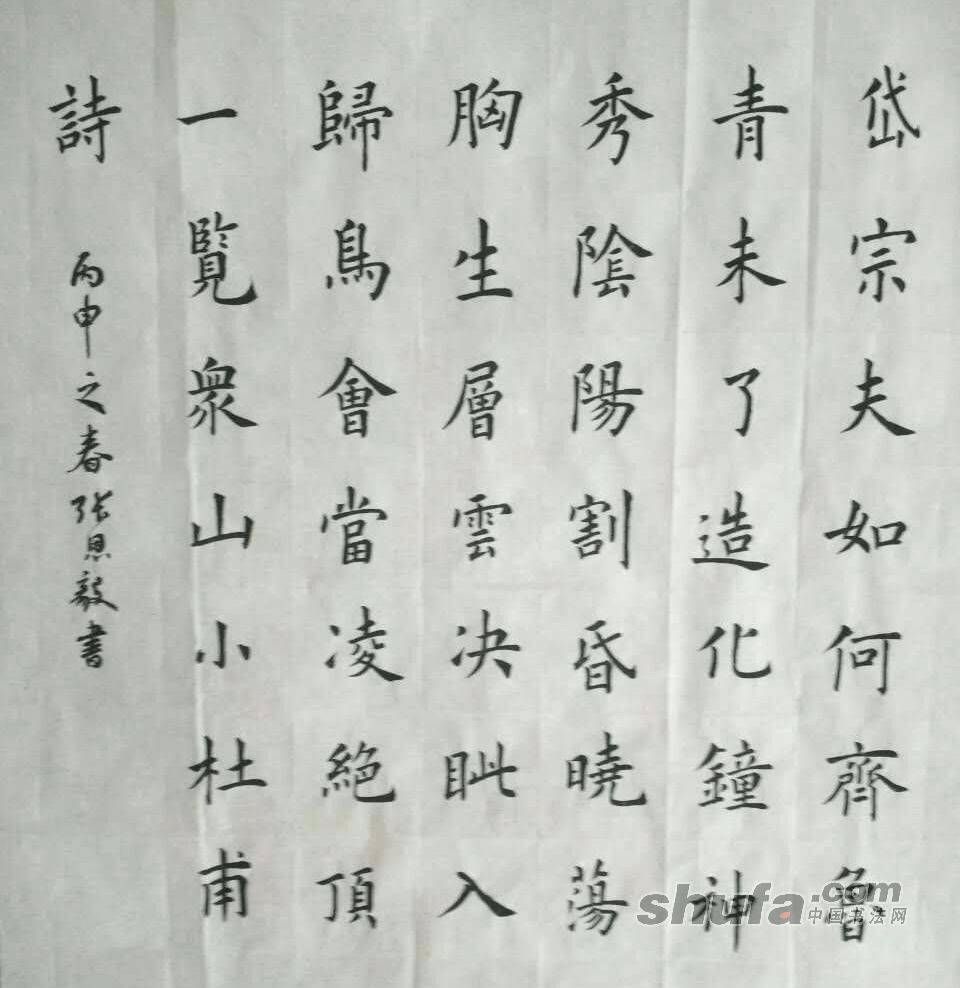 岱宗夫如何齊魯
青未了造化鐘神
秀陰陽割昏曉蕩
胸生層雲决眦入
歸鳥會當凌絕頂
一覽衆山小杜甫
詩
丙申之春张思毅書
shufa.com
中国书法网